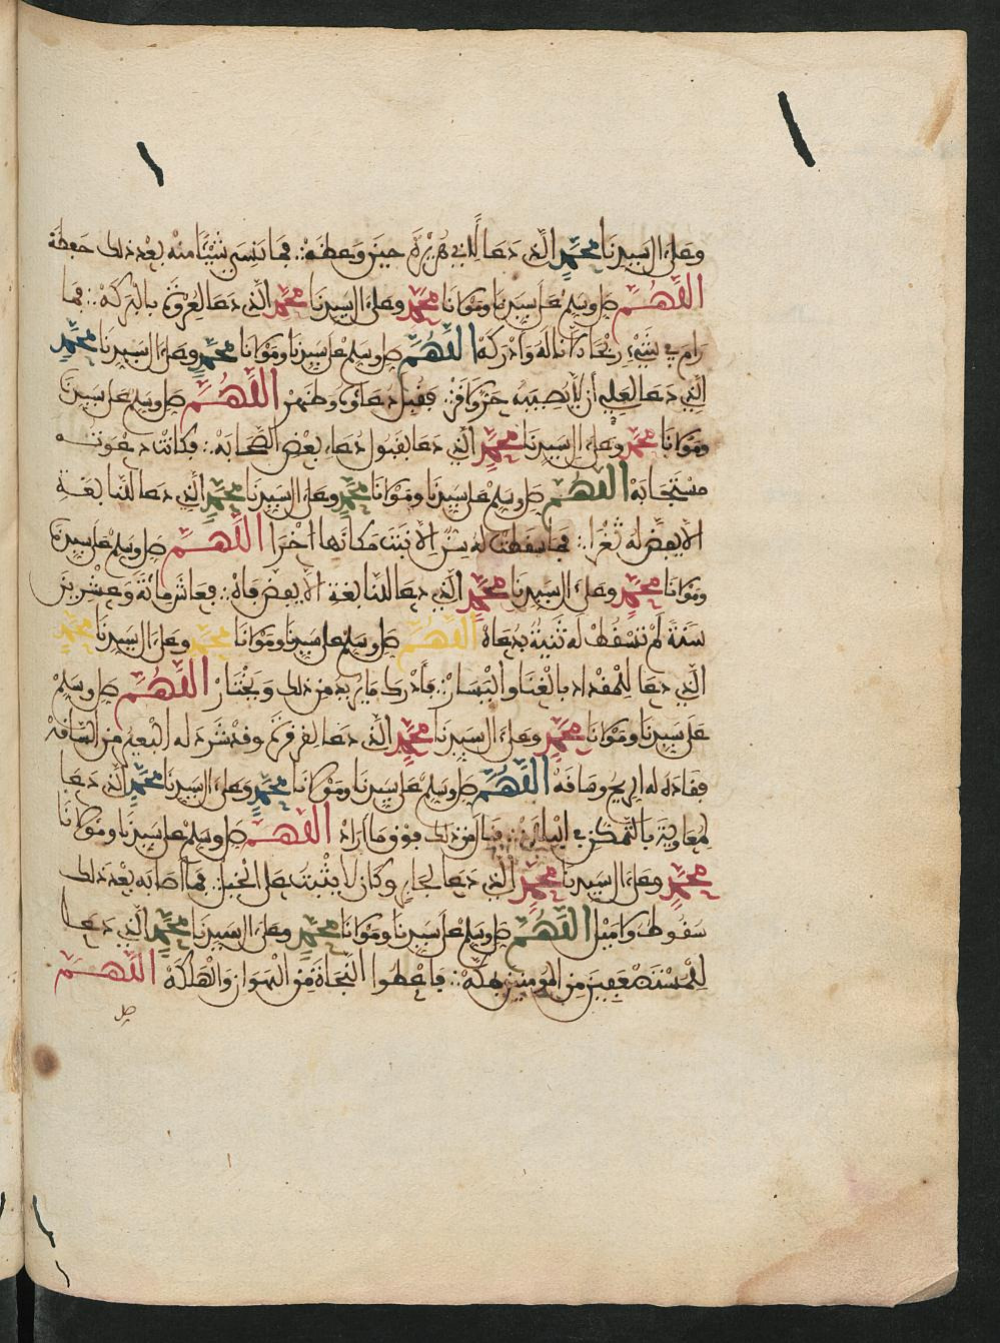 وعلى ءال سيدنا محمد الذي دعا لأبي هريرة حين وعظه فما نسي شيئا منه بعد ذلك حفظه
اللهم صل وسلم على سيدنا ومولانا محمد وعلى ءال سيدنا محمد الذي دعا لعروة بالبركة فما
رام في شيء ربحا كانا له وادركه اللهم صل وسلم على سيدنا ومولانا محمد وعلى ءال سيدنا محمد
الذي دعا لعلي أن لا يصيبه حر ولا قر فقبل دعاؤه وظهر اللهم صل وسلم على سيدنا
ومولانا محمد وعلى ءال سيدنا محمد الذي دعا بقبول دعاء بعض الصحابه فكانت دعوته
مستجابة اللهم صل وسلم على سيدنا ومولانا محمد وعلى ءال سيدنا محمد الذي دعا للنابغة
لا يفضض له ثغرا فما سقطت له سن الا نبتت مكانها اخرا اللهم صل وسلم على سيدنا
ومولانا محمد وعلى ءال سيدنا محمد الذي دعا للنابغة الا يفض فاه فعاش مائة وعشرين
سنة لم تسقط له ثنية بدعاه اللهم صل وسلم على سيدنا ومولانا محمد وعلى ءال سيدنا محمد
الذي دعا للمقداد بالغنا واليسار فأدرك ما يريد من ذلك ويختار اللهم صل وسلم
على سيدنا ومولانا محمد وعلى ءال سيدنا محمد الذي دعا وقد شرد له البعير من
فقاد له الريح وصافه اللهم صل وسلم على سيدنا ومولانا محمد وعلى ءال سيدنا محمد الذي دعا
لمعاوية بالتمكن في البلاد فنال من ذلك فوق ما اراد اللهم صل وسلم على سيدنا ومولانا
محمد وعلى ءال سيدنا محمد الذي دعا وكان لا يثبت على الخيل فما أصابه بعد ذلك
سقوط ولا ميل اللهم صل وسلم على سيدنا ومولانا محمد وعلى ءال سيدنا محمد الذي دعا
للمستضعفين من المومنين بمكة فاعطوا النجاة من الهوان والهلكة اللهم
صل